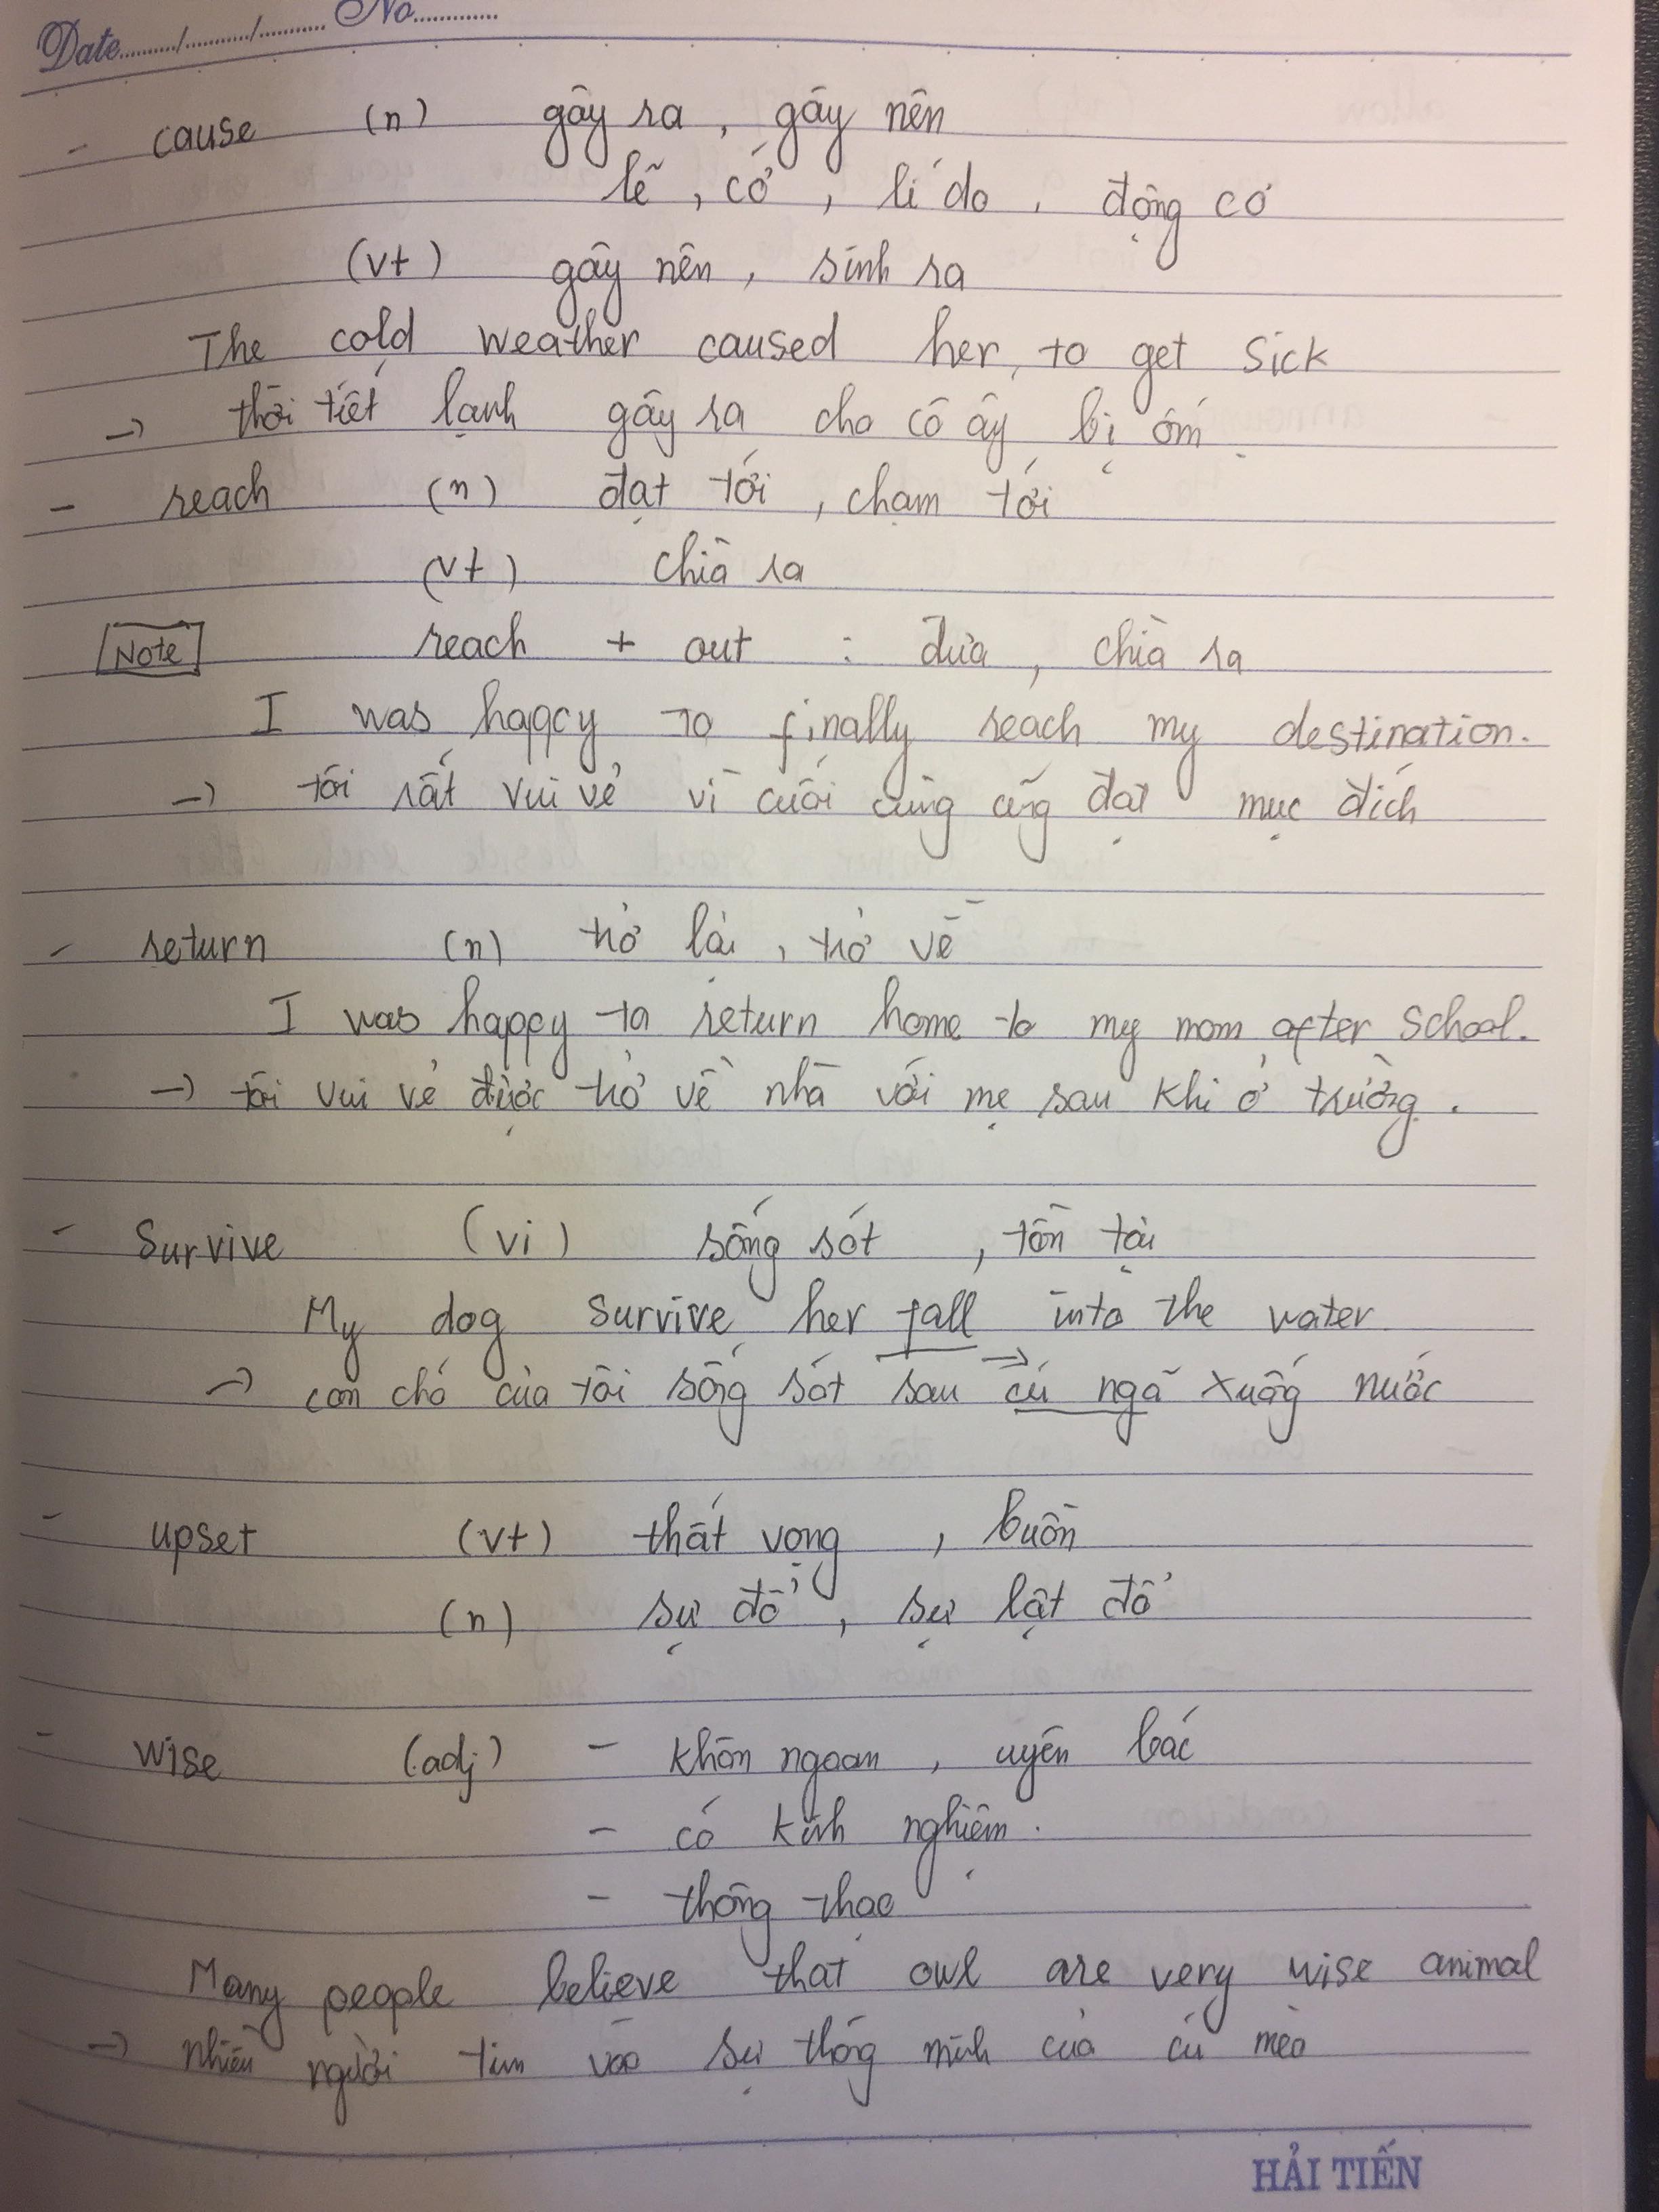 Date........../........../.......... No.............
- cause (n) gây ra , gây nên
lẽ , cớ , lí do , động cơ
(vt) gây nên , sinh ra
The cold weather caused her to get sick
→ thời tiết lạnh gây ra cho cô ấy bị ốm
- reach (n) đạt tới , chạm tới
(vt) chìa ra
Note reach + out : đưa , chìa ra
I was happy to finally reach my destination.
→ tôi rất vui vẻ vì cuối cùng cũng đạt mục đích
- return (n) trở lại , trở về
I was happy to return home to my mom after school.
→ tôi vui vẻ được trở về nhà với mẹ sau khi ở trường .
- Survive (vi) sống sót , tồn tại
My dog survive her fall into the water
→ con chó của tôi sống sót sau → cú ngã xuống nước
- upset (vt) thất vọng , buồn
(n) sự đổ , sự lật đổ
- wise (adj) - khôn ngoan , uyên bác
- có kinh nghiệm .
- thông thạo
Many people believe that owl are very wise animal
→ nhiều người tin vào sự thông minh của cú mèo
HẢI TIẾN